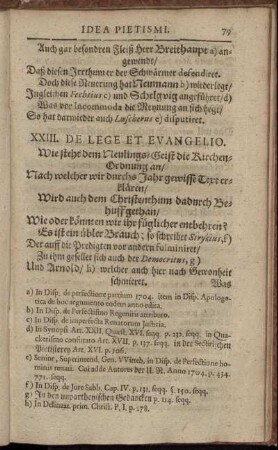 IDEA PIETISMI. 79
Auch gar besondren Fleiß Herr Breithaupt a) an-
gewendt/
Daß diesen Irrthum er der Schwärmer
Doch diese Neurung hat Neumann b) wiederlegt/
Ingleichen Fechtius c) und Schelgvig angeführet/d)
Was vor Incommoda die Meynung an sich hege/
So hat darwieder auch Lœscherus e) disputiret.
XXIII. DE LEGE ET EVANGELIO.
Wie steht dem Neulings-Geist die Kirchen-
Ordnung an/
Nach welcher wir durchs Jahr gewisse Texte er-
klären/
Wird auch dem Christenthum dadurch Be-
huff gethan/
Wie oder könnten wir ihr füglicher entbehren?
Es ist ein übler Brauch; so schreibet Strykius, f)
Der auff die Predigten vor andern fulminiret/
Zu ihm gesellet sich auch der Democritus, g)
Und Arnold/ h) welcher auch hier nach Gewonheit
schmieret. Was
a) In Disp. de perfectione partium 1704. item in Disp. Apologe-
tica de hoc argumento eodem anno edita.
b) In Disp. de Perfectissimo Regenitis attributo.
c) In Disp. de imperfecta Renatorum Justitia.
d) In Synopsi Art. XXII. Quæst. XVI. seqq. p. 232. seqq. in Qua-
cterismo confutato Art. XVI. p. 137. seqq. in der Sectirischen
Pietisterey Art. XVI. p. 106.
e) Senior, Superintend. Gen. VViteb, in Disp. de Perfectione hu-
minis renati. Cui adde Autores der U. N. Anno 1704. p. 434.
771. seqq.
f) In Disp. de Jure Sabb. Cap. IV. p. 131. seqq. §. 150. seqq.
g) In den unparthenischen Gedancken p. 114. seqq.
h) In Delineat. prim. Christ. P, I, p. 278.